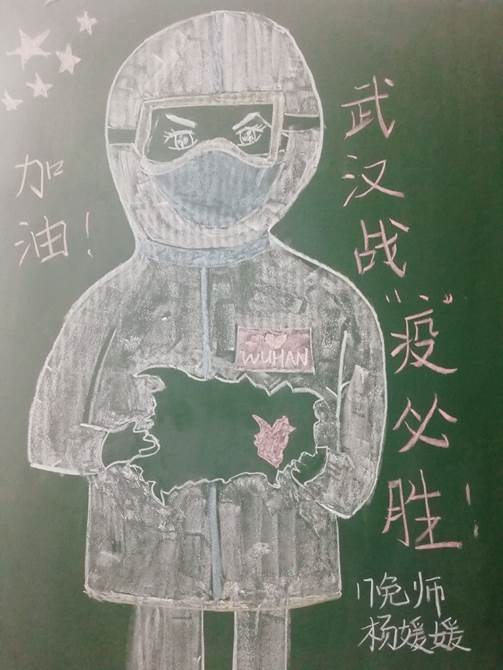 加油！
武汉战"疫"必胜！
WUHAN
17晚师
杨媛媛